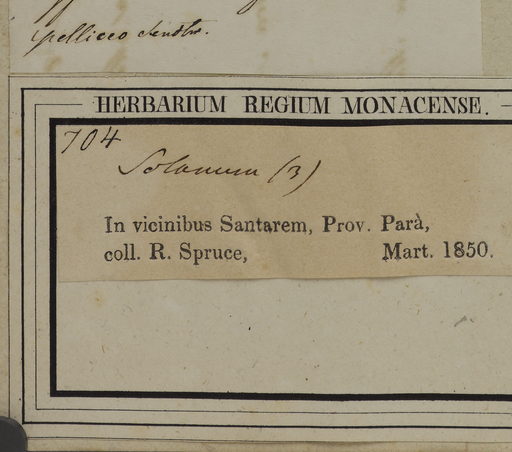 pelliceo
HERBARIUM REGIUM MONACENSE.
704
Solanum (3)
In vicinibus Santarem, Prov. Parà,
coll. R. Spruce, Mart. 1850.